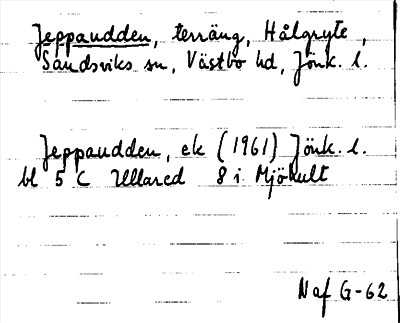 Jeppaudden, terräng, Hålgryte,
Sandsviks sn, Västbo hd, Jönk. l.
Jeppaudden, ek (1961) Jönk. l.
bl 5 C Ullared 8 i Mjöhult
Naf G-62